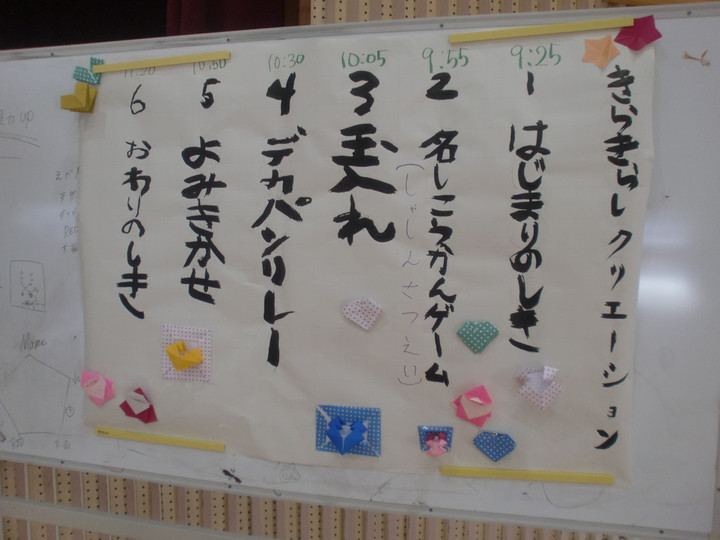 きらきらレクリエーション
9:25
1 はじまりのしき
9:55
2 名しこうかんゲーム
(しゃしんさつえい)
10:05
3 玉入れ
10:30
4 デカパンリレー
10:50
5 よみきかせ
11:20
6 おわりのしき